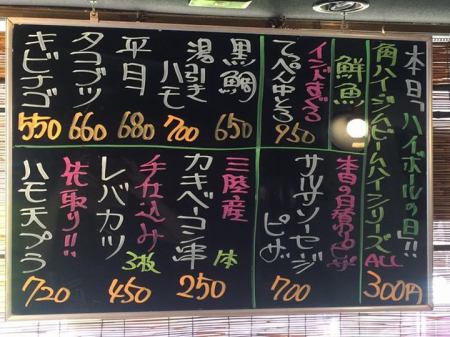 本日「ハイボールの日」!!
角ハイ・ジムビームハイシリーズ
ALL
300円
鮮魚
インドまぐろ
てっぺん中とろ
950
黒鯛
650
湯引き
ハモ
700
平目
680
タコブツ
660
キビナゴ
550
本日の日替わりピザ
サルサソーセージ
ピザ
700
三陸産
カキベーコン串
1本
250
手仕込み
レバカツ
3枚
450
先取り!!
ハモ天ぷら
720